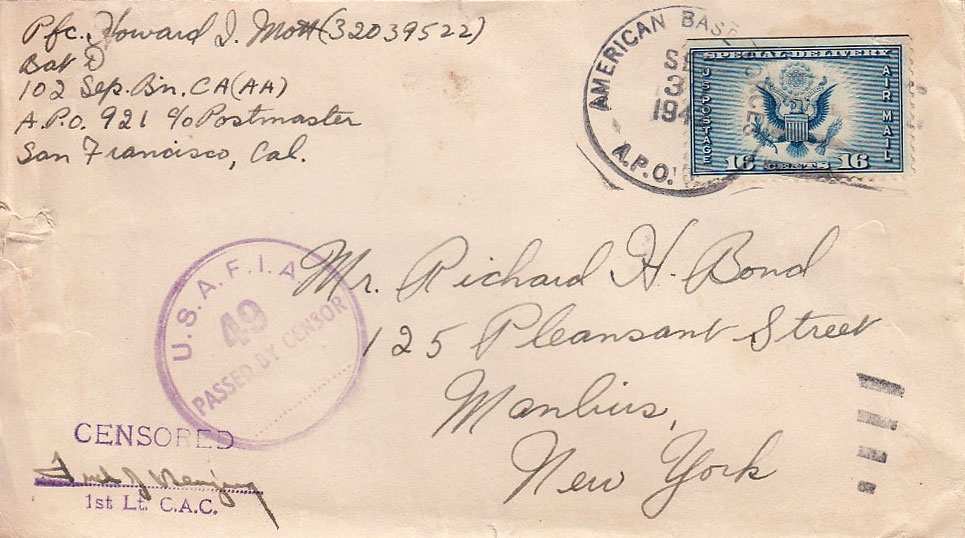 Pfc. Howard I. Mott (32039522)
Bat D
102 Sep. Bn. CA(AA)
A.P.O. 921 c/o Postmaster
San Francisco, Cal.
AMERICAN BASE FORCES
3
194
A.P.O.
SPECIAL DELIVERY
U.S. POSTAGE
AIR MAIL
16 CENTS 16
Mr. Richard H. Bond
125 Pleansant Street
Manlius,
New York
U.S.A.F.I.A.
49
PASSED BY CENSOR
CENSORED
1st Lt. C.A.C.